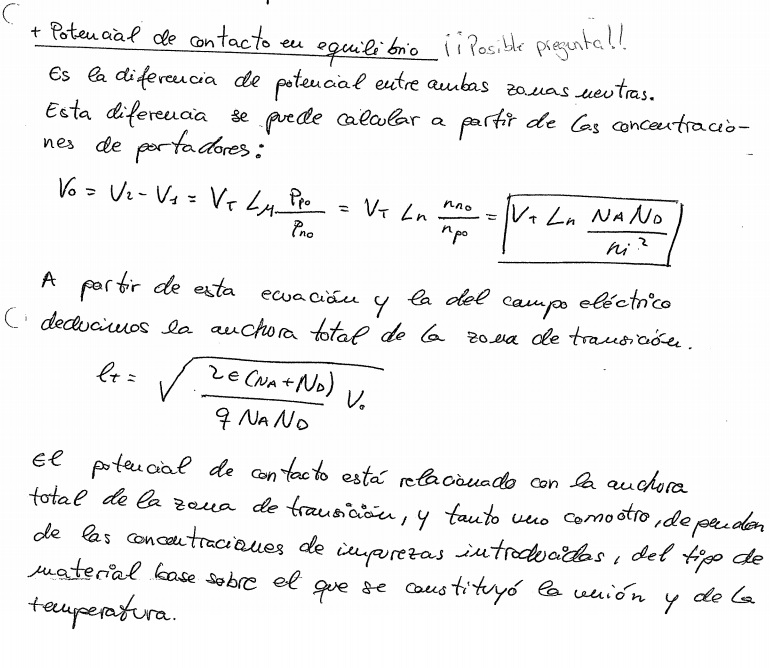 + Potencial de contacto en equilibrio ¡¡Posible pregunta!!
Es la diferencia de potencial entre ambas zonas neutras.
Esta diferencia se puede calcular a partir de las concentracio-
nes de portadores:
V₀ = V₂ - V₁ = V_T Ln P_po/P_no = V_T Ln n_no/n_po = V_T Ln N_A N_D/n_i²
A partir de esta ecuación y la del campo eléctrico
deducimos la anchura total de la zona de transición.
l_T = √(2ϵ(N_A + N_D)/(q N_A N_D) V₀)
El potencial de contacto está relacionado con la anchura
total de la zona de transición, y tanto uno como otro, dependen
de las concentraciones de impurezas introducidas, del tipo de
material base sobre el que se constituyó la unión y de la
temperatura.